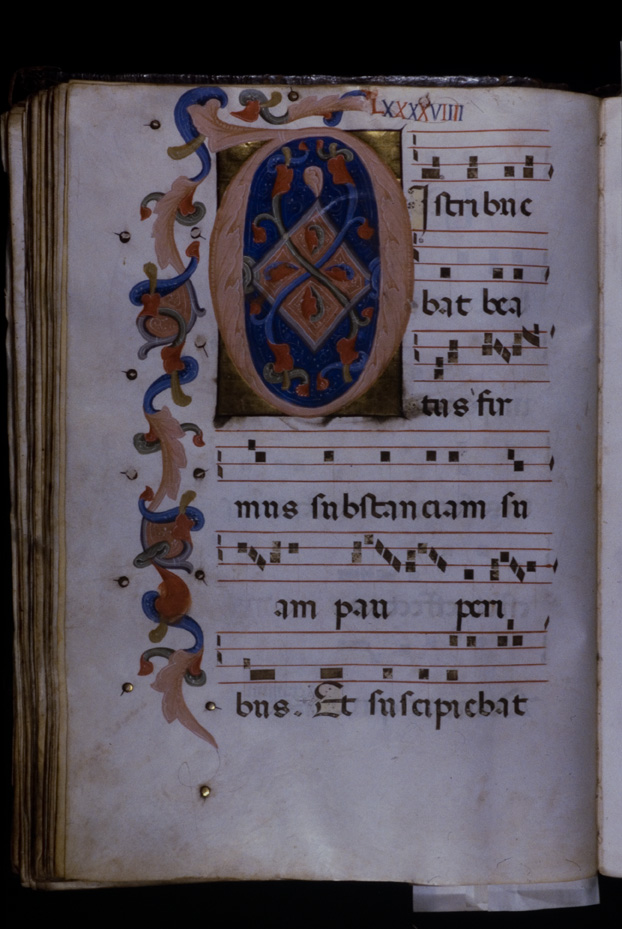 LXXXXVIIII
DIstribue
bat bea
tus fir
mus substanciam su
am pau peri
bus. Et suscipiebat